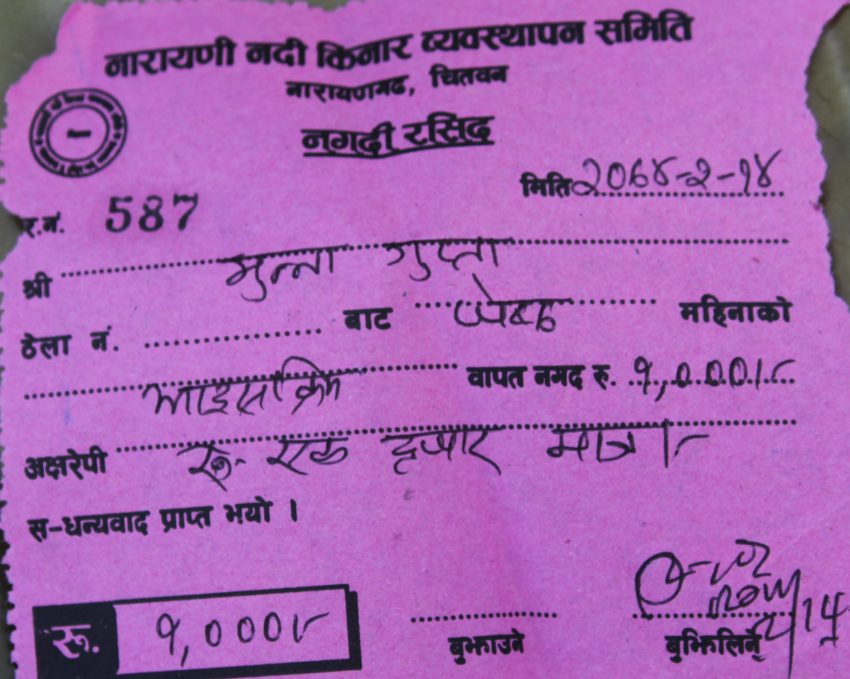 नारायणी नदी किनार व्यवस्थापन समिति
नारायणगढ, चितवन
नगदी रसिद
मिति २०६४-२-१४
र.नं. 587
श्री मुन्ना गुप्ता
ठेला नं. बाट जेष्ठ महिनाको
आइसक्रिम वापत नगद रु. १,०००।-
अक्षरेपी रु. एक हजार मात्र।-
स-धन्यवाद प्राप्त भयो ।
रू. १,०००।-
बुझाउने बुझिलिने